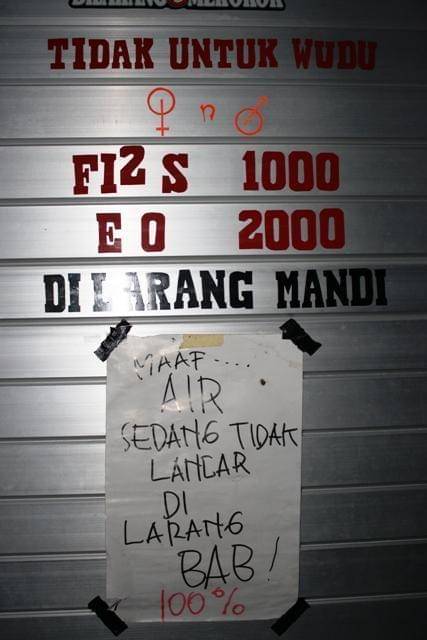 DILARANG MEROKOK
TIDAK UNTUK WUDU
♀ n ♂
FI2 S 1000
E O 2000
DILARANG MANDI
MAAF....
AIR
SEDANG TIDAK
LANCAR
DI
LARANG
BAB!
100%